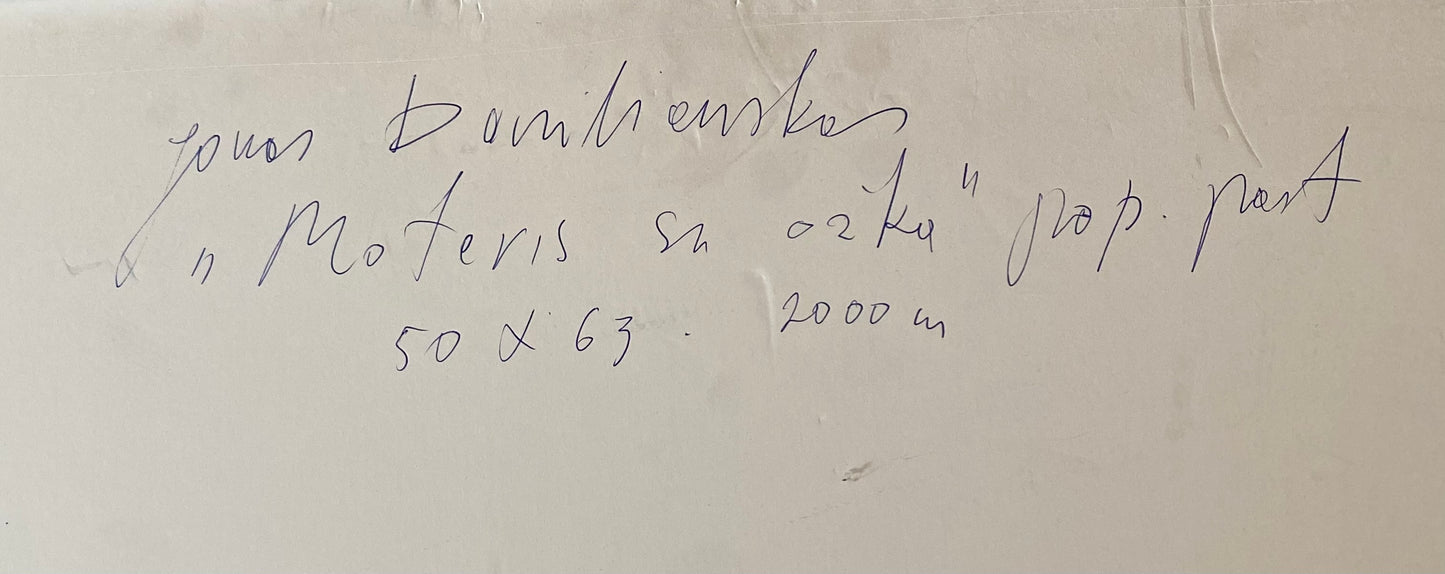 Jonas Daniliauskas
„Moteris su ožka" pop. past
50 x 63. 2000 m